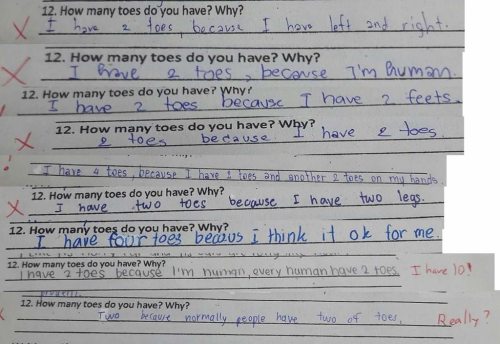 12. How many toes do you have? Why?
I have 2 toes, because I have left and right.
12. How many toes do you have? Why?
I have 2 toes, because I'm human.
12. How many toes do you have? Why?
I have 2 toes because I have 2 feets.
12. How many toes do you have? Why?
2 toes because I have 2 toes.
I have 4 toes, because I have 2 toes and another 2 toes on my hands
12. How many toes do you have? Why?
I have two toes because I have two legs.
12. How many toes do you have? Why?
I have four toes becaus i think it ok for me.
12. How many toes do you have? Why?
I have 2 toes because I'm human, every human have 2 toes. I have 10!
12. How many toes do you have? Why?
Two because normally people have two of toes. Really?